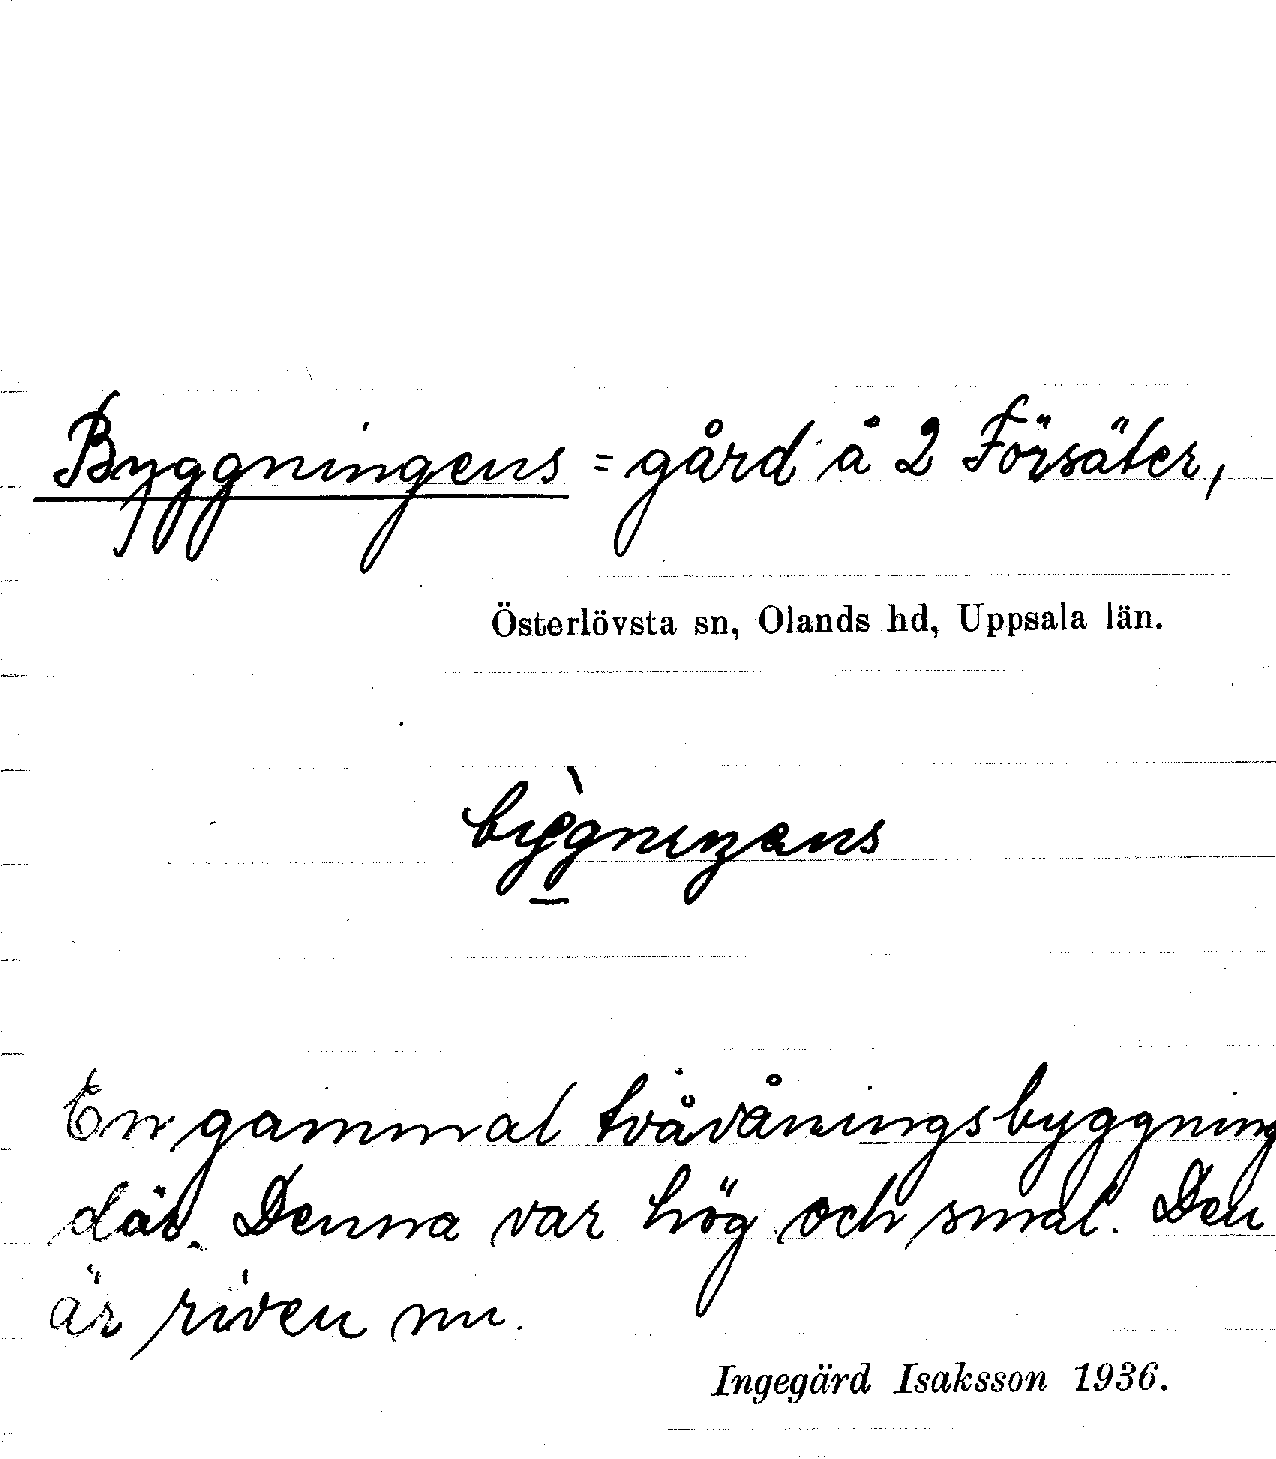 Byggningens = gård å 2 Försäter,
Österlövsta sn, Olands hd, Uppsala län.
En gammal tvåvåningsbyggning
där. Denna var hög och smal. Den
är riven nu.
Ingegärd Isaksson 1936.